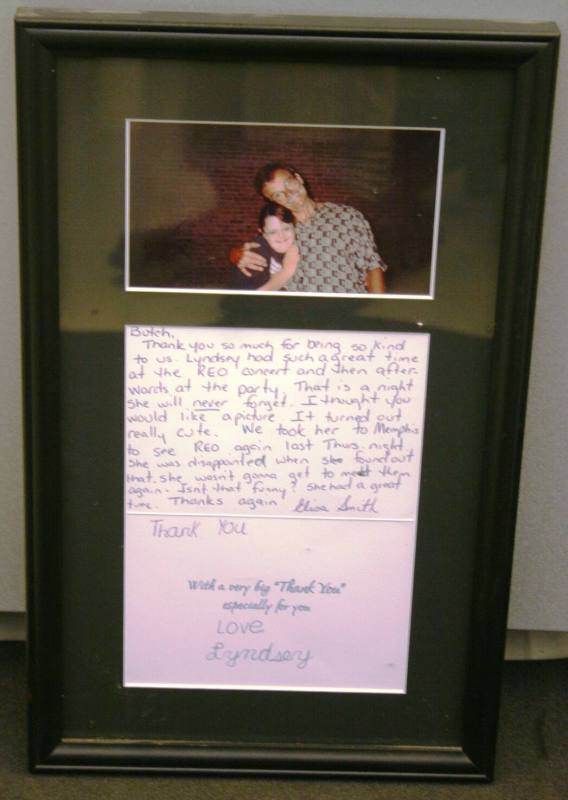 Butch,
Thank you so much for being so kind
to us. Lyndsey had such a great time
at the REO concert and then after-
words at the party. That is a night
she will never forget. I thought you
would like a picture. It turned out
really cute. We took her to Memphis
to see REO again last Thus. night.
She was disappointed when she found out
that she wasn't gonna get to meet them
again. Isnt that funny? she had a great
time. Thanks again Elisa Smith
Thank You
With a very big "Thank You"
especially for you
Love
Lyndsey